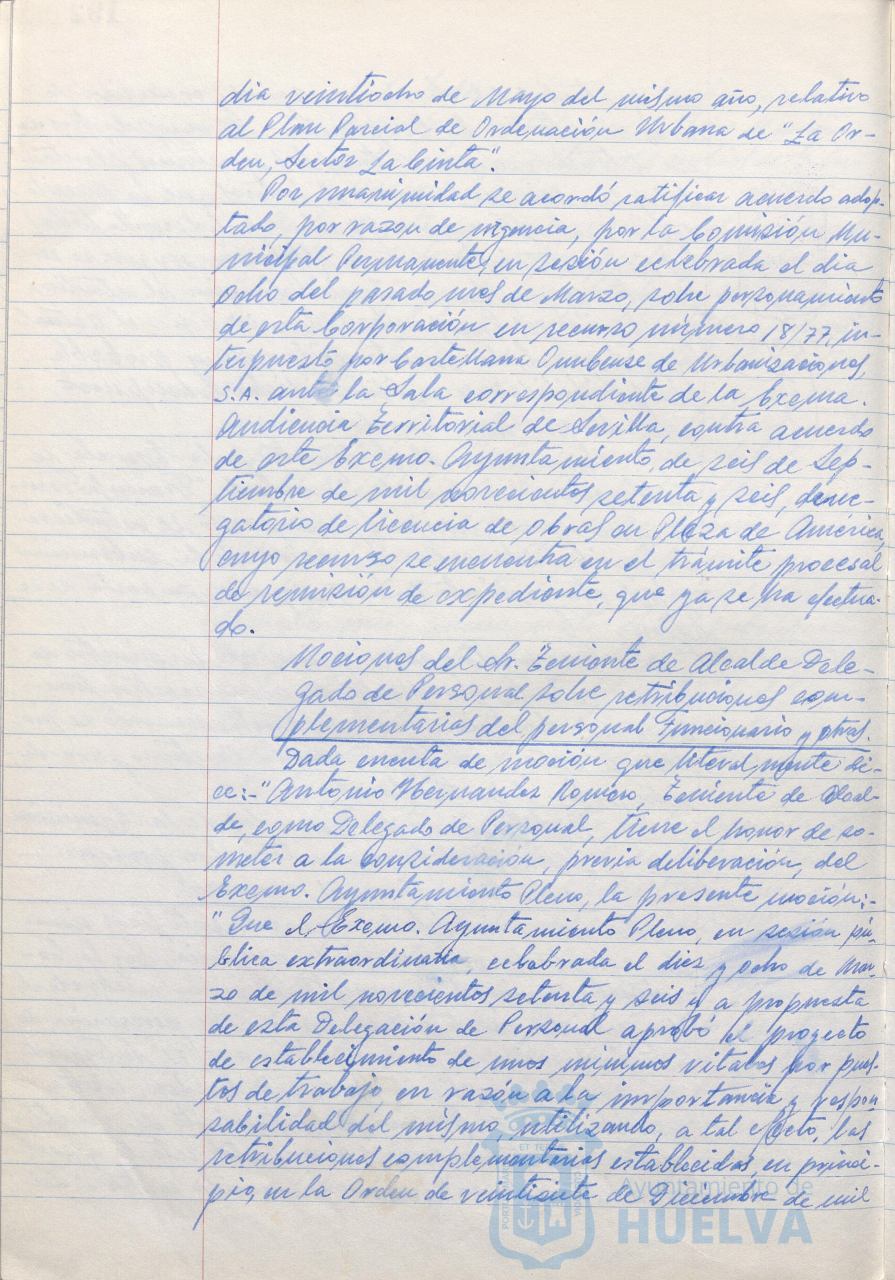 dia veintiocho de Mayo del mismo año, relativo
al Plan Parcial de Ordenación Urbana de "La Or-
den, Sector La Cinta".
Por unanimidad se acordó ratificar acuerdo adop-
tado, por razon de urgencia, por la Comisión Mu-
nicipal Permanente, en sesión celebrada el dia
ocho del pasado mes de Marzo, sobre personamiento
de esta Corporación en recurso número 18/77, in-
terpuesto por Castellana Onubense de Urbanizaciones,
S.A. ante la Sala correspondiente de la Excma.
Audiencia Territorial de Sevilla, contra acuerdo
de este Excmo. Ayuntamiento, de seis de Sep-
tiembre de mil novecientos setenta y seis, dene-
gatorio de licencia de obras en Plaza de América,
cuyo recurso se encuentra en el trámite procesal
de remisión de expediente, que ya se ha efectua-
do.
Mociones del Sr. Teniente de Alcalde Dele-
gado de Personal sobre retribuciones com-
plementarias del personal Funcionario y otras.
Dada cuenta de moción que literalmente di-
ce:-"Antonio Hernandez Romero, Teniente de Alcal-
de, como Delegado de Personal, tiene el honor de so-
meter a la consideración, previa deliberación, del
Excmo. Ayuntamiento Pleno, la presente moción:-
"Que el Excmo. Ayuntamiento Pleno, en sesión pú-
blica extraordinaria, celebrada el diez y ocho de Mar-
zo de mil novecientos setenta y seis y a propuesta
de esta Delegación de Personal aprobó el proyecto
de establecimiento de unos mínimos vitales por pues-
tos de trabajo, en razón a la importancia y respon-
sabilidad del mismo utilizando, a tal efecto, las
retribuciones complementarias establecidas, en princi-
pio, en la Orden de veintisiete de Diciembre de mil
Ayuntamiento de
HUELVA